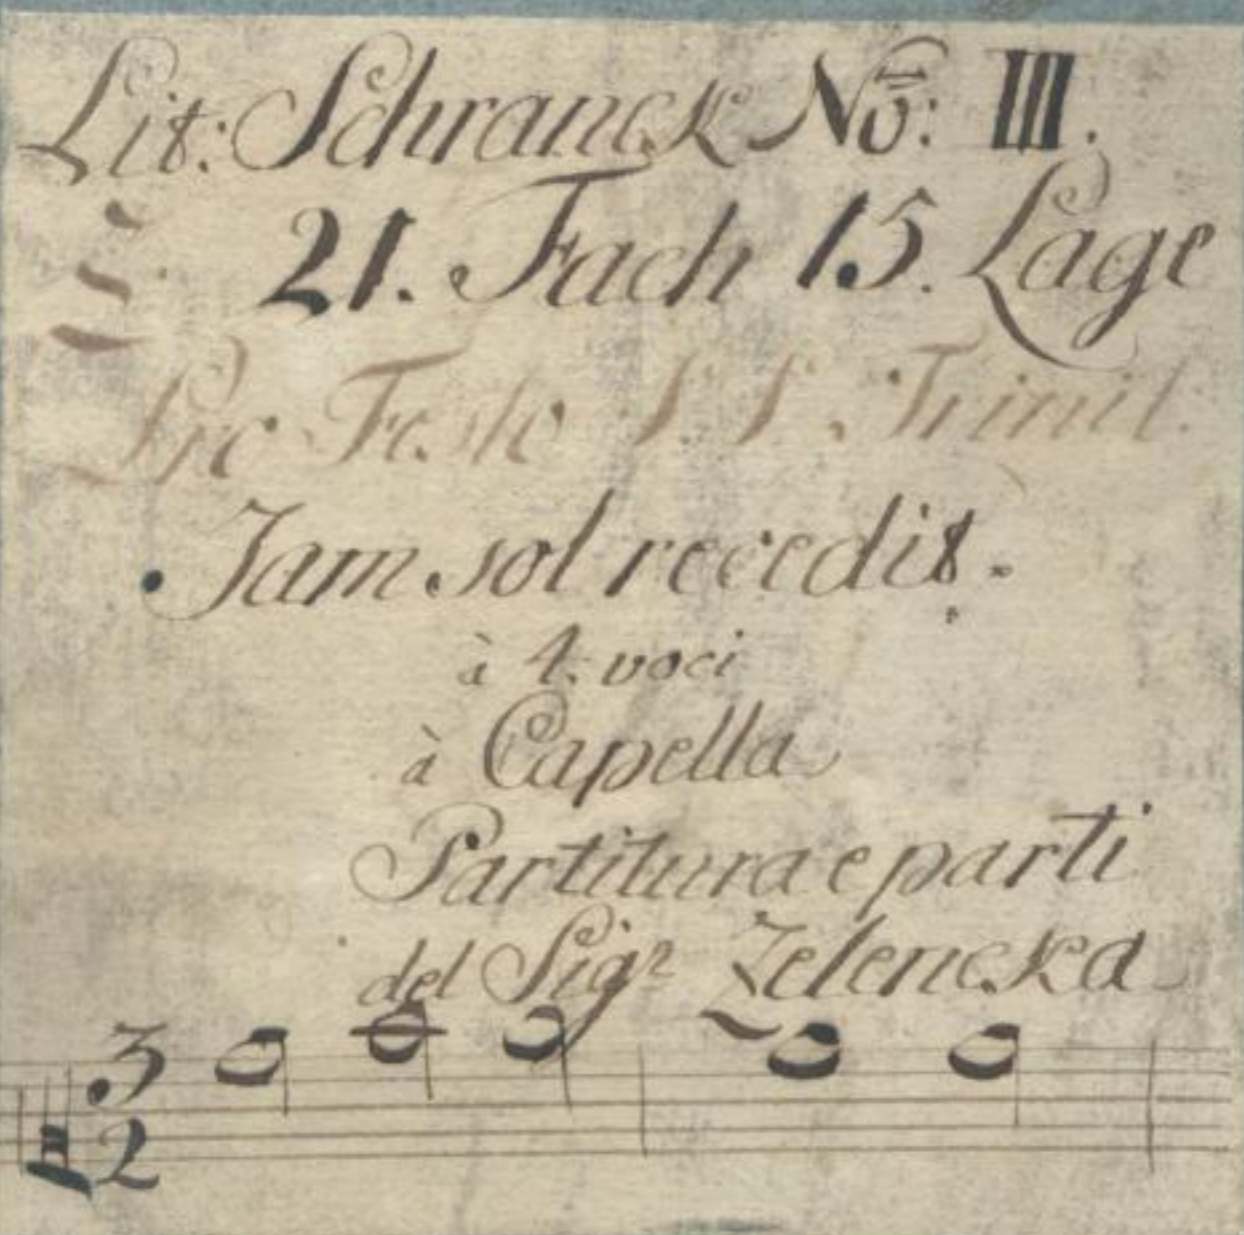 Lit: Schranck No: III.
21. Fach 15. Lage
Pro Festo SS. Trinit.
Jam sol recedit.
à 4. voci
à Capella
Partitura e parti
del Sigr Zelencka
3
2